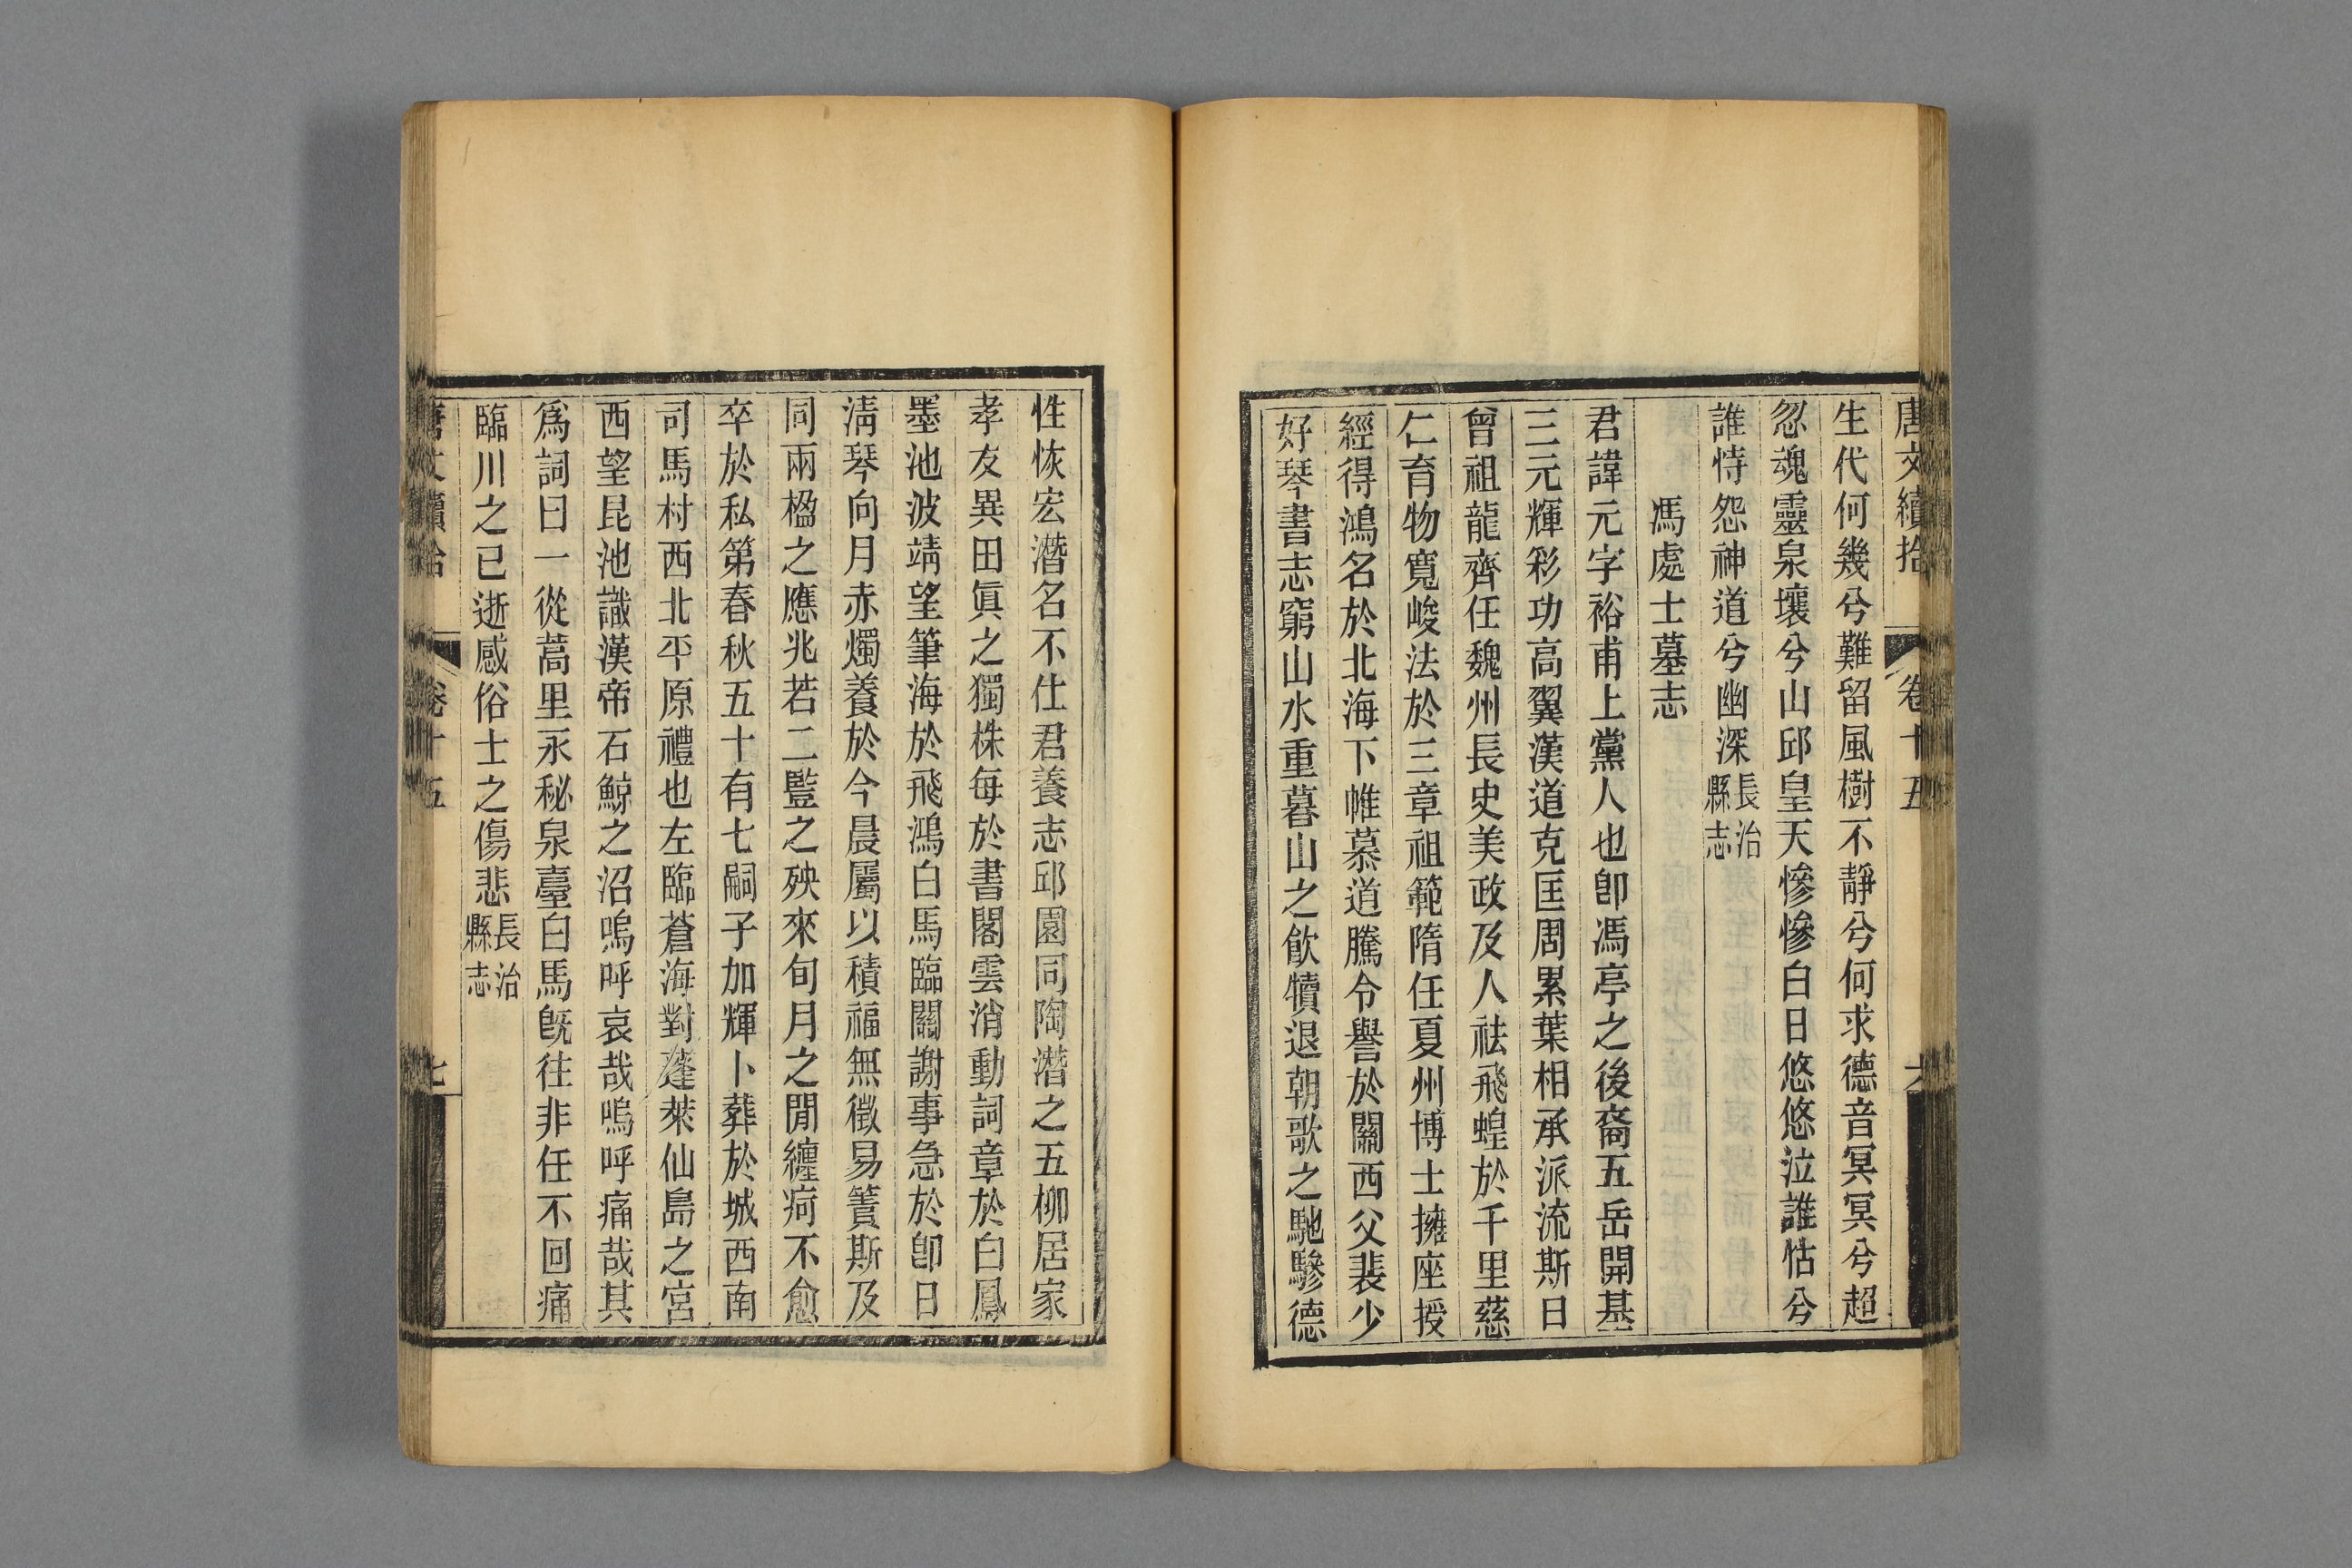 唐文續拾 卷十五
生代何幾兮難留風樹不靜兮何求德音冥冥兮超
忽魂靈泉壤兮山邱皇天慘慘白日悠悠泣誰怙兮
誰恃怨神道兮幽深長治縣志
馮處士墓志
君諱元字裕甫上黨人也卽馮亭之後裔五岳開基
三元輝彩功高翼漢道克匡周累葉相承派流斯日
曾祖龍齊任魏州長史美政及人祛飛蝗於千里慈
仁育物寬峻法於三章祖範隋任夏州博士擁座授
經得鴻名於北海下帷慕道騰令譽於關西父裴少
好琴書志窮山水重暮山之飮犢退朝歌之馳驂德
性恢宏潛名不仕君養志邱園同陶潛之五柳居家
孝友異田眞之獨株每於書閣雲消動詞章於白鳳
墨池波靖望筆海於飛鴻白馬臨關謝事急於卽日
淸琴向月赤燭養於今晨屬以積福無徵易簀斯及
同兩楹之應兆若二豎之殃來旬月之閒纏痾不愈
卒於私第春秋五十有七嗣子加輝卜葬於城西南
司馬村西北平原禮也左臨蒼海對蓬萊仙島之宮
西望昆池識漢帝石鯨之沼嗚呼哀哉嗚呼痛哉其
爲詞曰一從蒿里永秘泉臺白馬旣往非任不回痛
臨川之已逝感俗士之傷悲長治縣志
唐文續拾 卷十五 七